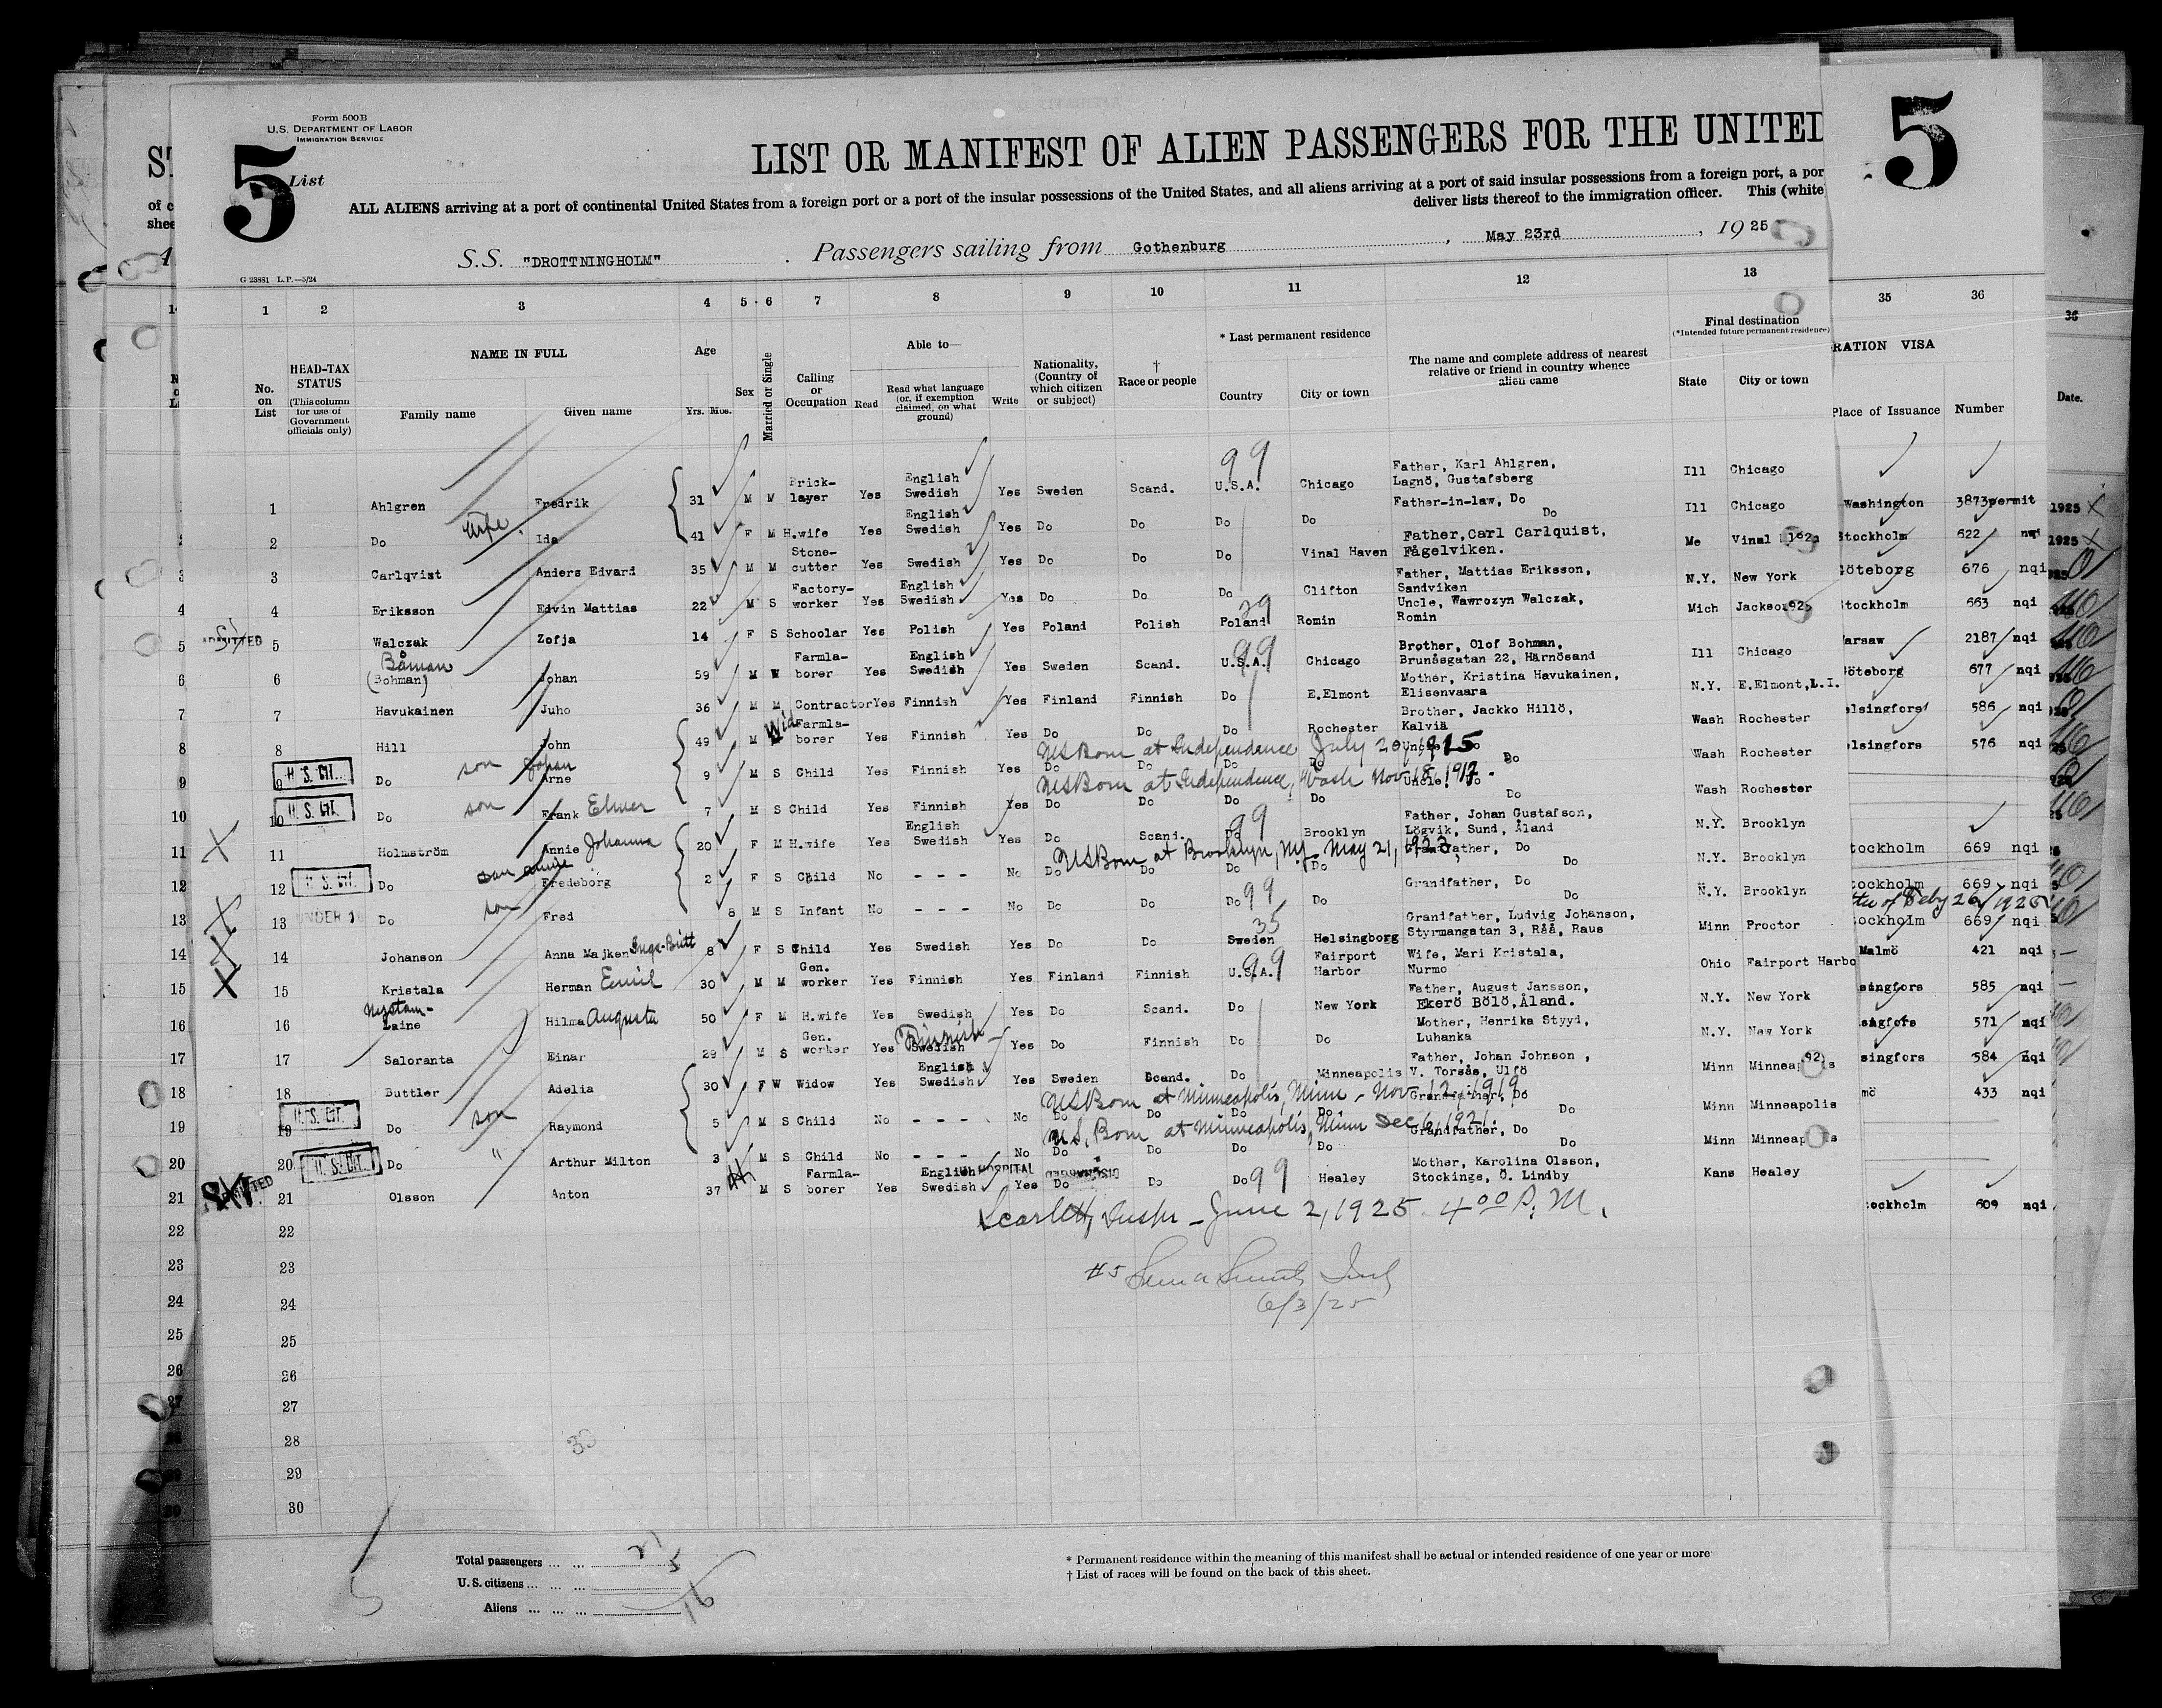 Form 500B
U.S. DEPARTMENT OF LABOR
IMMIGRATION SERVICE
5 List 5
LIST OR MANIFEST OF ALIEN PASSENGERS FOR THE UNITED
ALL ALIENS arriving at a port of continental United States from a foreign port or a port of the insular possessions of the United States, and all aliens arriving at a port of said insular possessions from a foreign port, a por
deliver lists thereof to the immigration officer. This (white
S.S. "DROTTNINGHOLM" . Passengers sailing from Gothenburg , May 23rd , 19 25
G 23881 L.P.—5/24
1 2 3 4 5 6 7 8 9 10 11 12 13 35 36
No. on List
HEAD-TAX STATUS (This column for use of Government officials only)
NAME IN FULL Family name Given name
Age Yrs. Mos.
Sex
Married or Single
Calling or Occupation
Able to— Read Read what language (or, if exemption claimed, on what ground) Write
Nationality, (Country of which citizen or subject)
† Race or people
* Last permanent residence Country City or town
The name and complete address of nearest relative or friend in country whence alien came
Final destination (*Intended future permanent residence) State City or town
RATION VISA Place of Issuance Number Date.
1 Ahlgren Fredrik 31 M M Brick-layer Yes English Swedish Yes Sweden Scand. 99 U.S.A. Chicago Father, Karl Ahlgren, Lagnö, Gustafsberg Ill Chicago
2 Do wife Ida 41 F M H.wife Yes English Swedish Yes Do Do Do Do Father-in-law, Do Do Ill Chicago Washington 3873permit 1925
3 Carlqvist Anders Edvard 35 M M Stone-cutter Yes Swedish Yes Do Do Do Vinal Haven Father,Carl Carlquist, Fågelviken. Me Vinal Stockholm 622 nqi 1925
4 Eriksson Edvin Mattias 22 M S Factory-worker Yes English Swedish Yes Do Do Do Clifton Father, Mattias Eriksson, Sandviken N.Y. New York Göteborg 676 nqi
ADMITTED 5 Walczak Zofja 14 F S Schoolar Yes Polish Yes Poland Polish Poland Romin Uncle, Wawrozyn Walczak, Romin Mich Jackson Stockholm 663 nqi
6 Båman (Bohman) Johan 59 M W Farmla-borer Yes English Swedish Yes Sweden Scand. 99 U.S.A. Chicago Brother, Olof Bohman, Brunåsgatan 22, Härnösand Ill Chicago arsaw 2187 nqi
7 Havukainen Juho 36 M M Contractor Yes Finnish Yes Finland Finnish Do E.Elmont Mother, Kristina Havukainen, Elisenvaara N.Y. E.Elmont,L.I. Göteborg 677 nqi
8 Hill John 49 M Wid Farmla-borer Yes Finnish Yes Do Do Do Rochester Brother, Jackko Hillö, Kalviä Wash Rochester elsingfors 586 nqi
U.S. CIT. 9 Do son Johan Arne 9 M S Child Yes Finnish Yes Do Do Do Do USBorn at Independance July 20, 1915 Uncle, Do Do Wash Rochester elsingfors 576 nqi
U.S. CIT. 10 Do son Frank Elmer 7 M S Child Yes Finnish Yes Do Do Do Do USBorn at Independence, Wash Nov. 18, 1917 - Uncle, Do Do Wash Rochester
11 Holmström Annie Johanna 20 F M H.wife Yes English Swedish Yes Do Scand. 99 Brooklyn Father, Johan Gustafson, Lögvik, Sund, Åland N.Y. Brooklyn
U.S. CIT. 12 Do Fredeborg 2 F S Child No - - - No Do Do Do Do USBorn at Brooklyn, NY. May 21, 1923, Grandfather, Do Do N.Y. Brooklyn tockholm 669 nqi
UNDER 16 13 Do son Fred 8 M S Infant No - - - No Do Do Do 99 Do Grandfather, Do Do N.Y. Brooklyn tockholm 669 nqi
14 Johanson Anna Majken Inga-Britt 8 F S Child Yes Swedish Yes Do Do 35 Sweden Helsingborg Grandfather, Ludvig Johanson, Styrmangatan 3, Råå, Raus Minn Proctor tockholm 669 nqi
15 Kristala Herman Emil 30 M M Gen. worker Yes Finnish Yes Finland Finnish 99 U.S.A. Fairport Harbor Wife, Mari Kristala, Nurmo Ohio Fairport Harbo Malmö 421 nqi
16 Nystam- Laine Hilma Augusta 50 F M H.wife Yes Swedish Yes Do Scand. Do New York Father, August Jansson, Ekerö Bölö,Åland. N.Y. New York singfors 585 nqi
17 Saloranta Einar 29 M S Gen. worker Yes Finnish Swedish Yes Do Finnish Do Do Mother, Henrika Styyd, Luhanka N.Y. New York singfors 571 nqi
18 Buttler Adelia 30 F W Widow Yes English Swedish Yes Sweden Scand. Do Minneapolis Father, Johan Johnson , V. Torsås, Ulfö Minn Minneapolis singfors 584 nqi
U.S. CIT. 19 Do son Raymond 5 M S Child No - - - No Do Do Do Do USBorn at Minneapolis, Minn - Nov. 12, 1919 Grandfather, Do Do Minn Minneapolis mö 433 nqi
U.S. CIT. 20 Do " Arthur Milton 3 M S Child No - - - No Do Do Do Do U.S. Born at Minneapolis, Minn Dec 6, 1921. Grandfather, Do Do Minn Minneapolis
ADMITTED 21 Olsson Anton 37 M S Farmla-borer Yes English Swedish Yes IN HOSPITAL DISCHARGED Do Do Do 99 Healey Mother, Karolina Olsson, Stockinge, Ö. Lindby Kans Healey
tockholm 609 nqi
22 Scarlett, Inspr - June 2, 1925. 4 00 P. M.
23 #5
24 6/3/25
25
26
27
28
29
30
Total passengers ... ... 21
U.S. citizens ... ... ... 5
Aliens ... ... ... 16
* Permanent residence within the meaning of this manifest shall be actual or intended residence of one year or more
† List of races will be found on the back of this sheet.